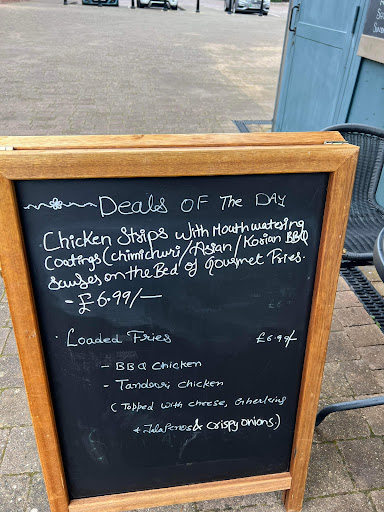 Deals OF The DAY
Chicken Strips with Mouth watering
Coatings (chimichuri/Asian/Korian BBQ
Sauses on the Bed of Gourmet Fries.
- £6.99/-
Loaded Fries £6.99/-
- BBQ Chicken
- Tandoori chicken
(Topped with cheese,
+ Jalapenos & crispy onions.)